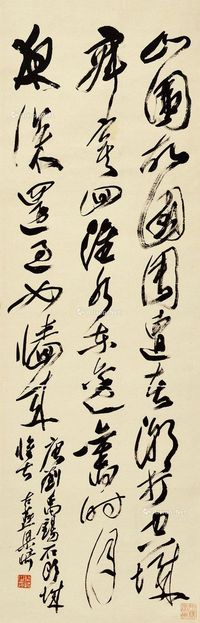 山圍故國周遭在潮打空城
寂寞回淮水東邊舊時月
夜深還過女牆來
唐劉禹錫石頭城
懷古 古燕梁崎